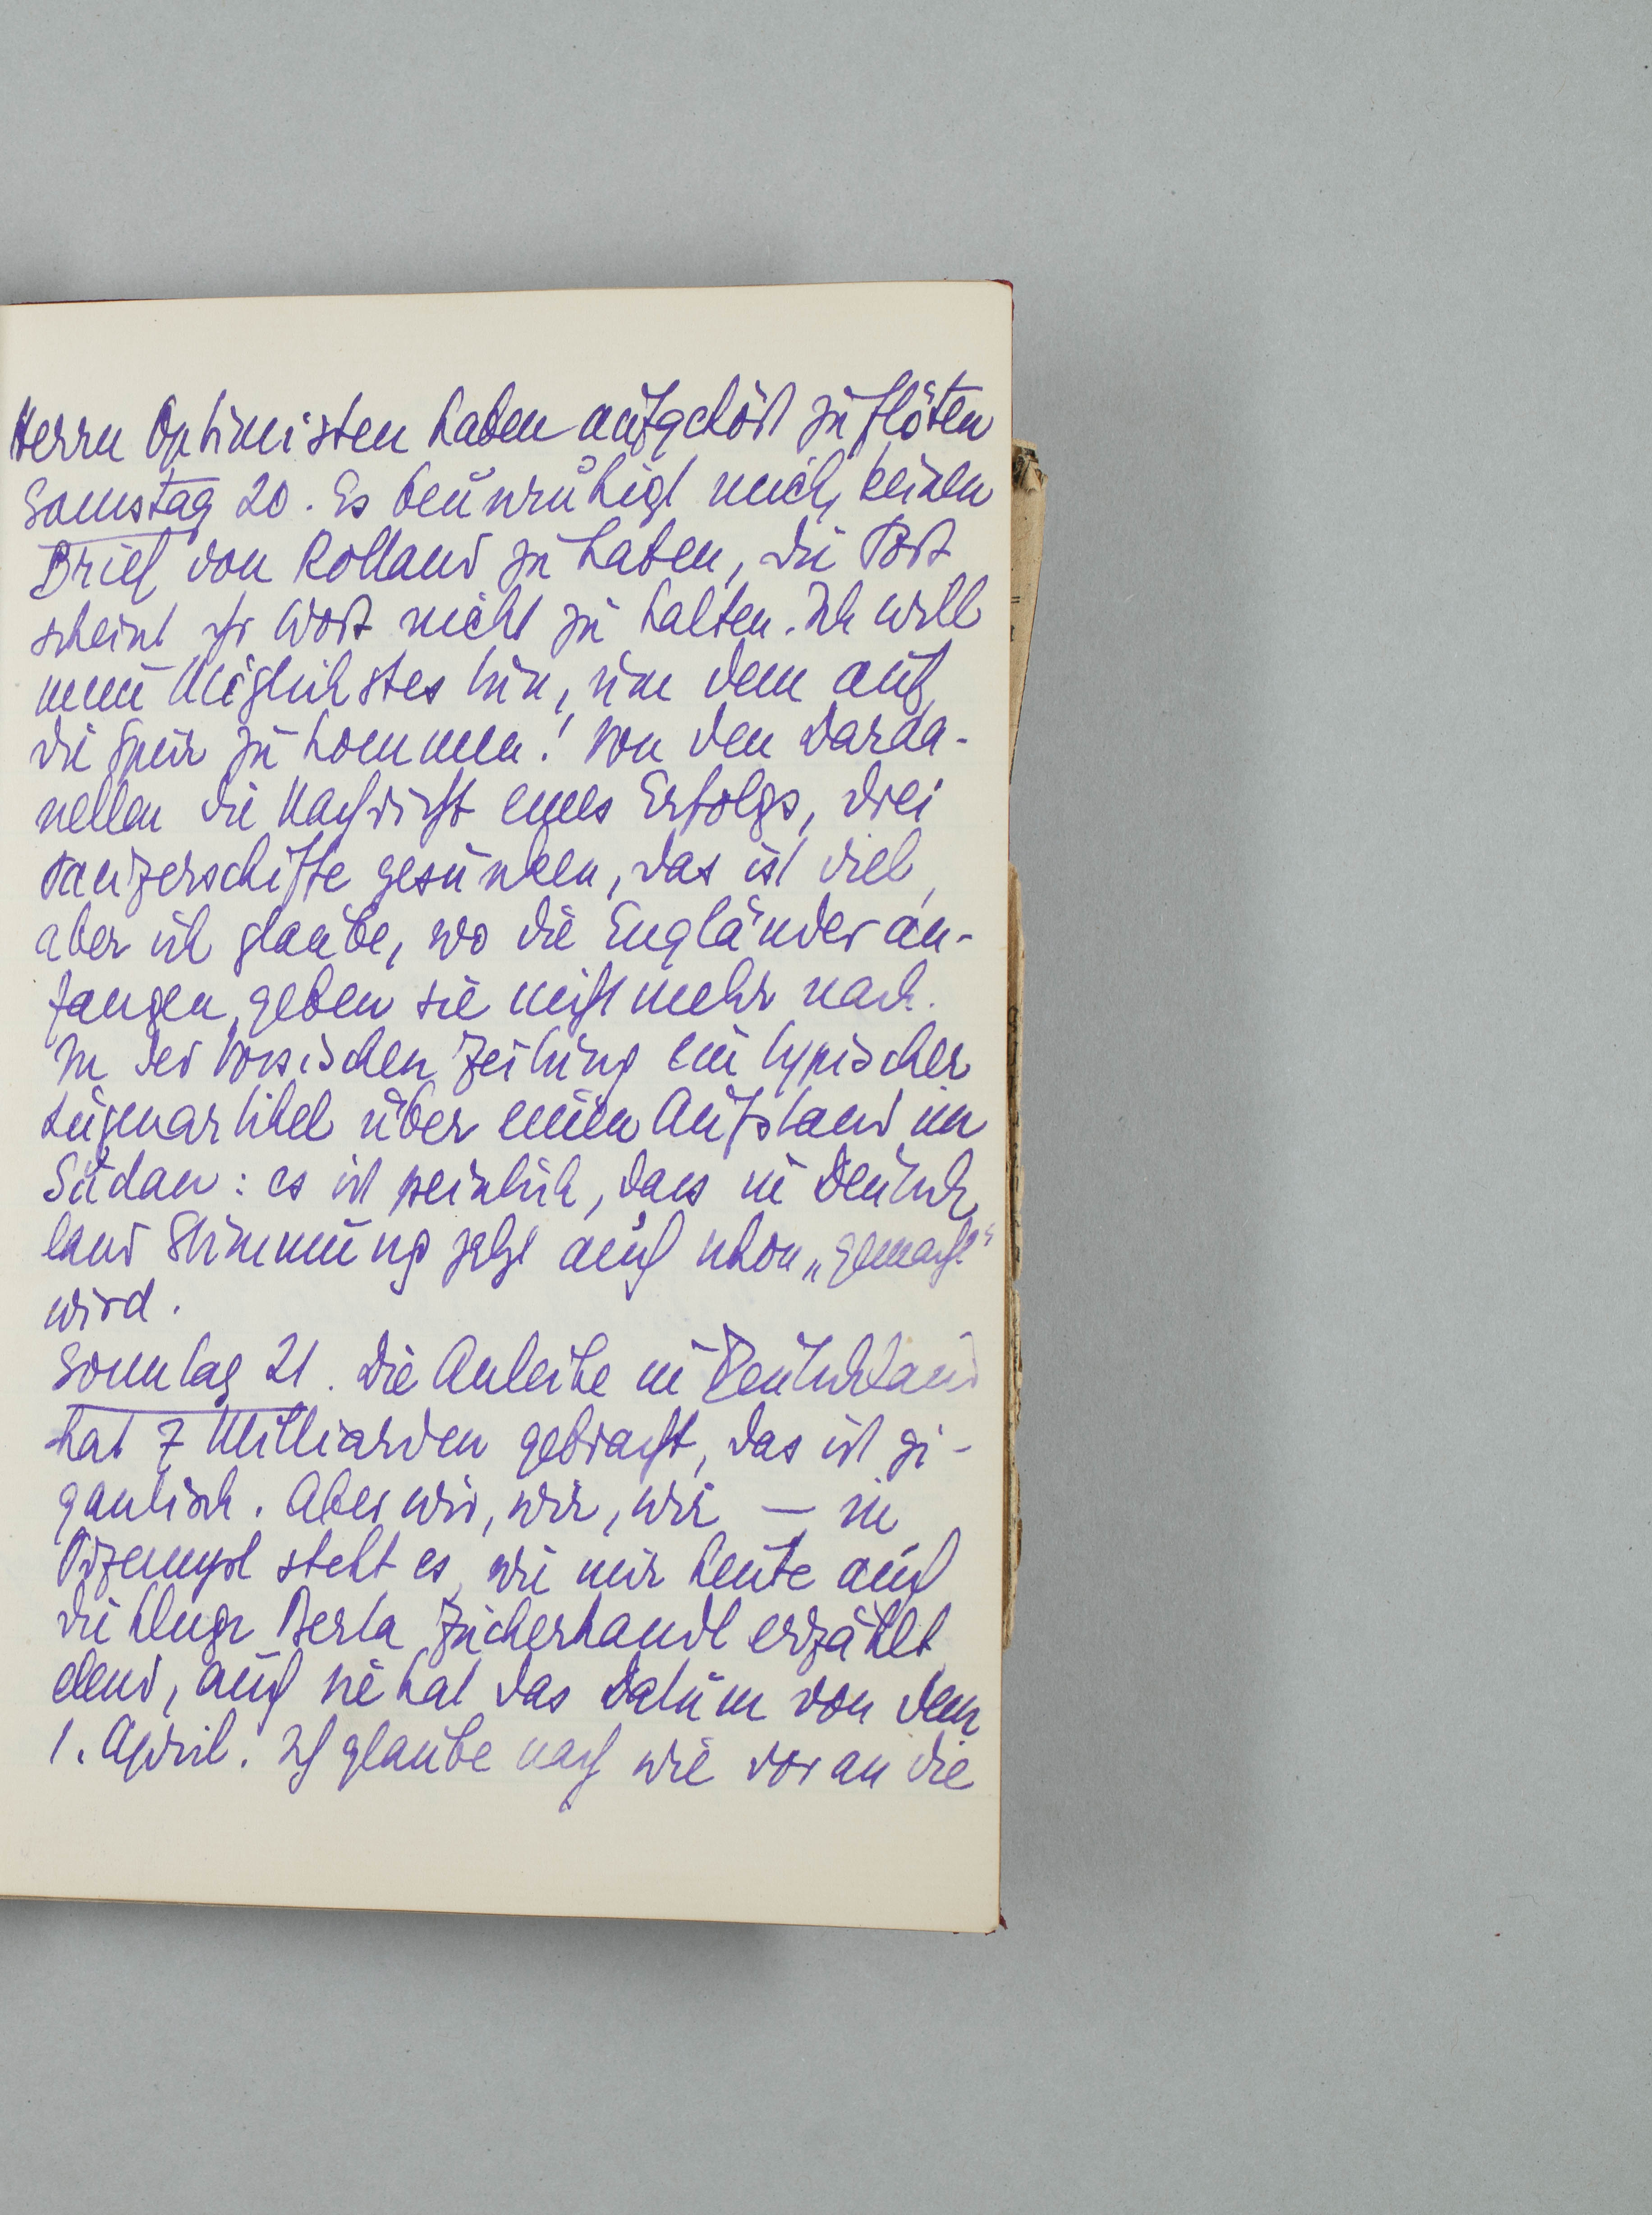 Herrn Optimisten haben aufgehört zu flöten
Samstag 20. Es beunruhigt mich, keinen
Brief von Rolland zu haben, die Post
scheint ihr Wort nicht zu halten. Ich will
mein Möglichstes tun, um dem auf
die Spur zu kommen! Von den Darda-
nellen die Nachricht eines Erfolgs, drei
Panzerschiffe gesunken, das ist viel,
aber ich glaube, wo die Engländer an-
fangen, geben sie nicht mehr nach.
In der Vossischen Zeitung ein typischer
Lügenartikel über einen Aufstand im
Sudan: es ist peinlich, dass in Deutsch
land Stimmung jetzt auch schon „gemacht“
wird.
Sonntag 21. Die Anleihe in Deutschland
hat 7 Milliarden gebracht, das ist gi-
gantisch. Aber wir, wir, wir — in
Przemysl steht es, wie mir heute auch
die kluge Berta Zuckerkandl erzählt
elend, auch sie hat das Datum von dem
1. April. Ich glaube nach wie vor an die